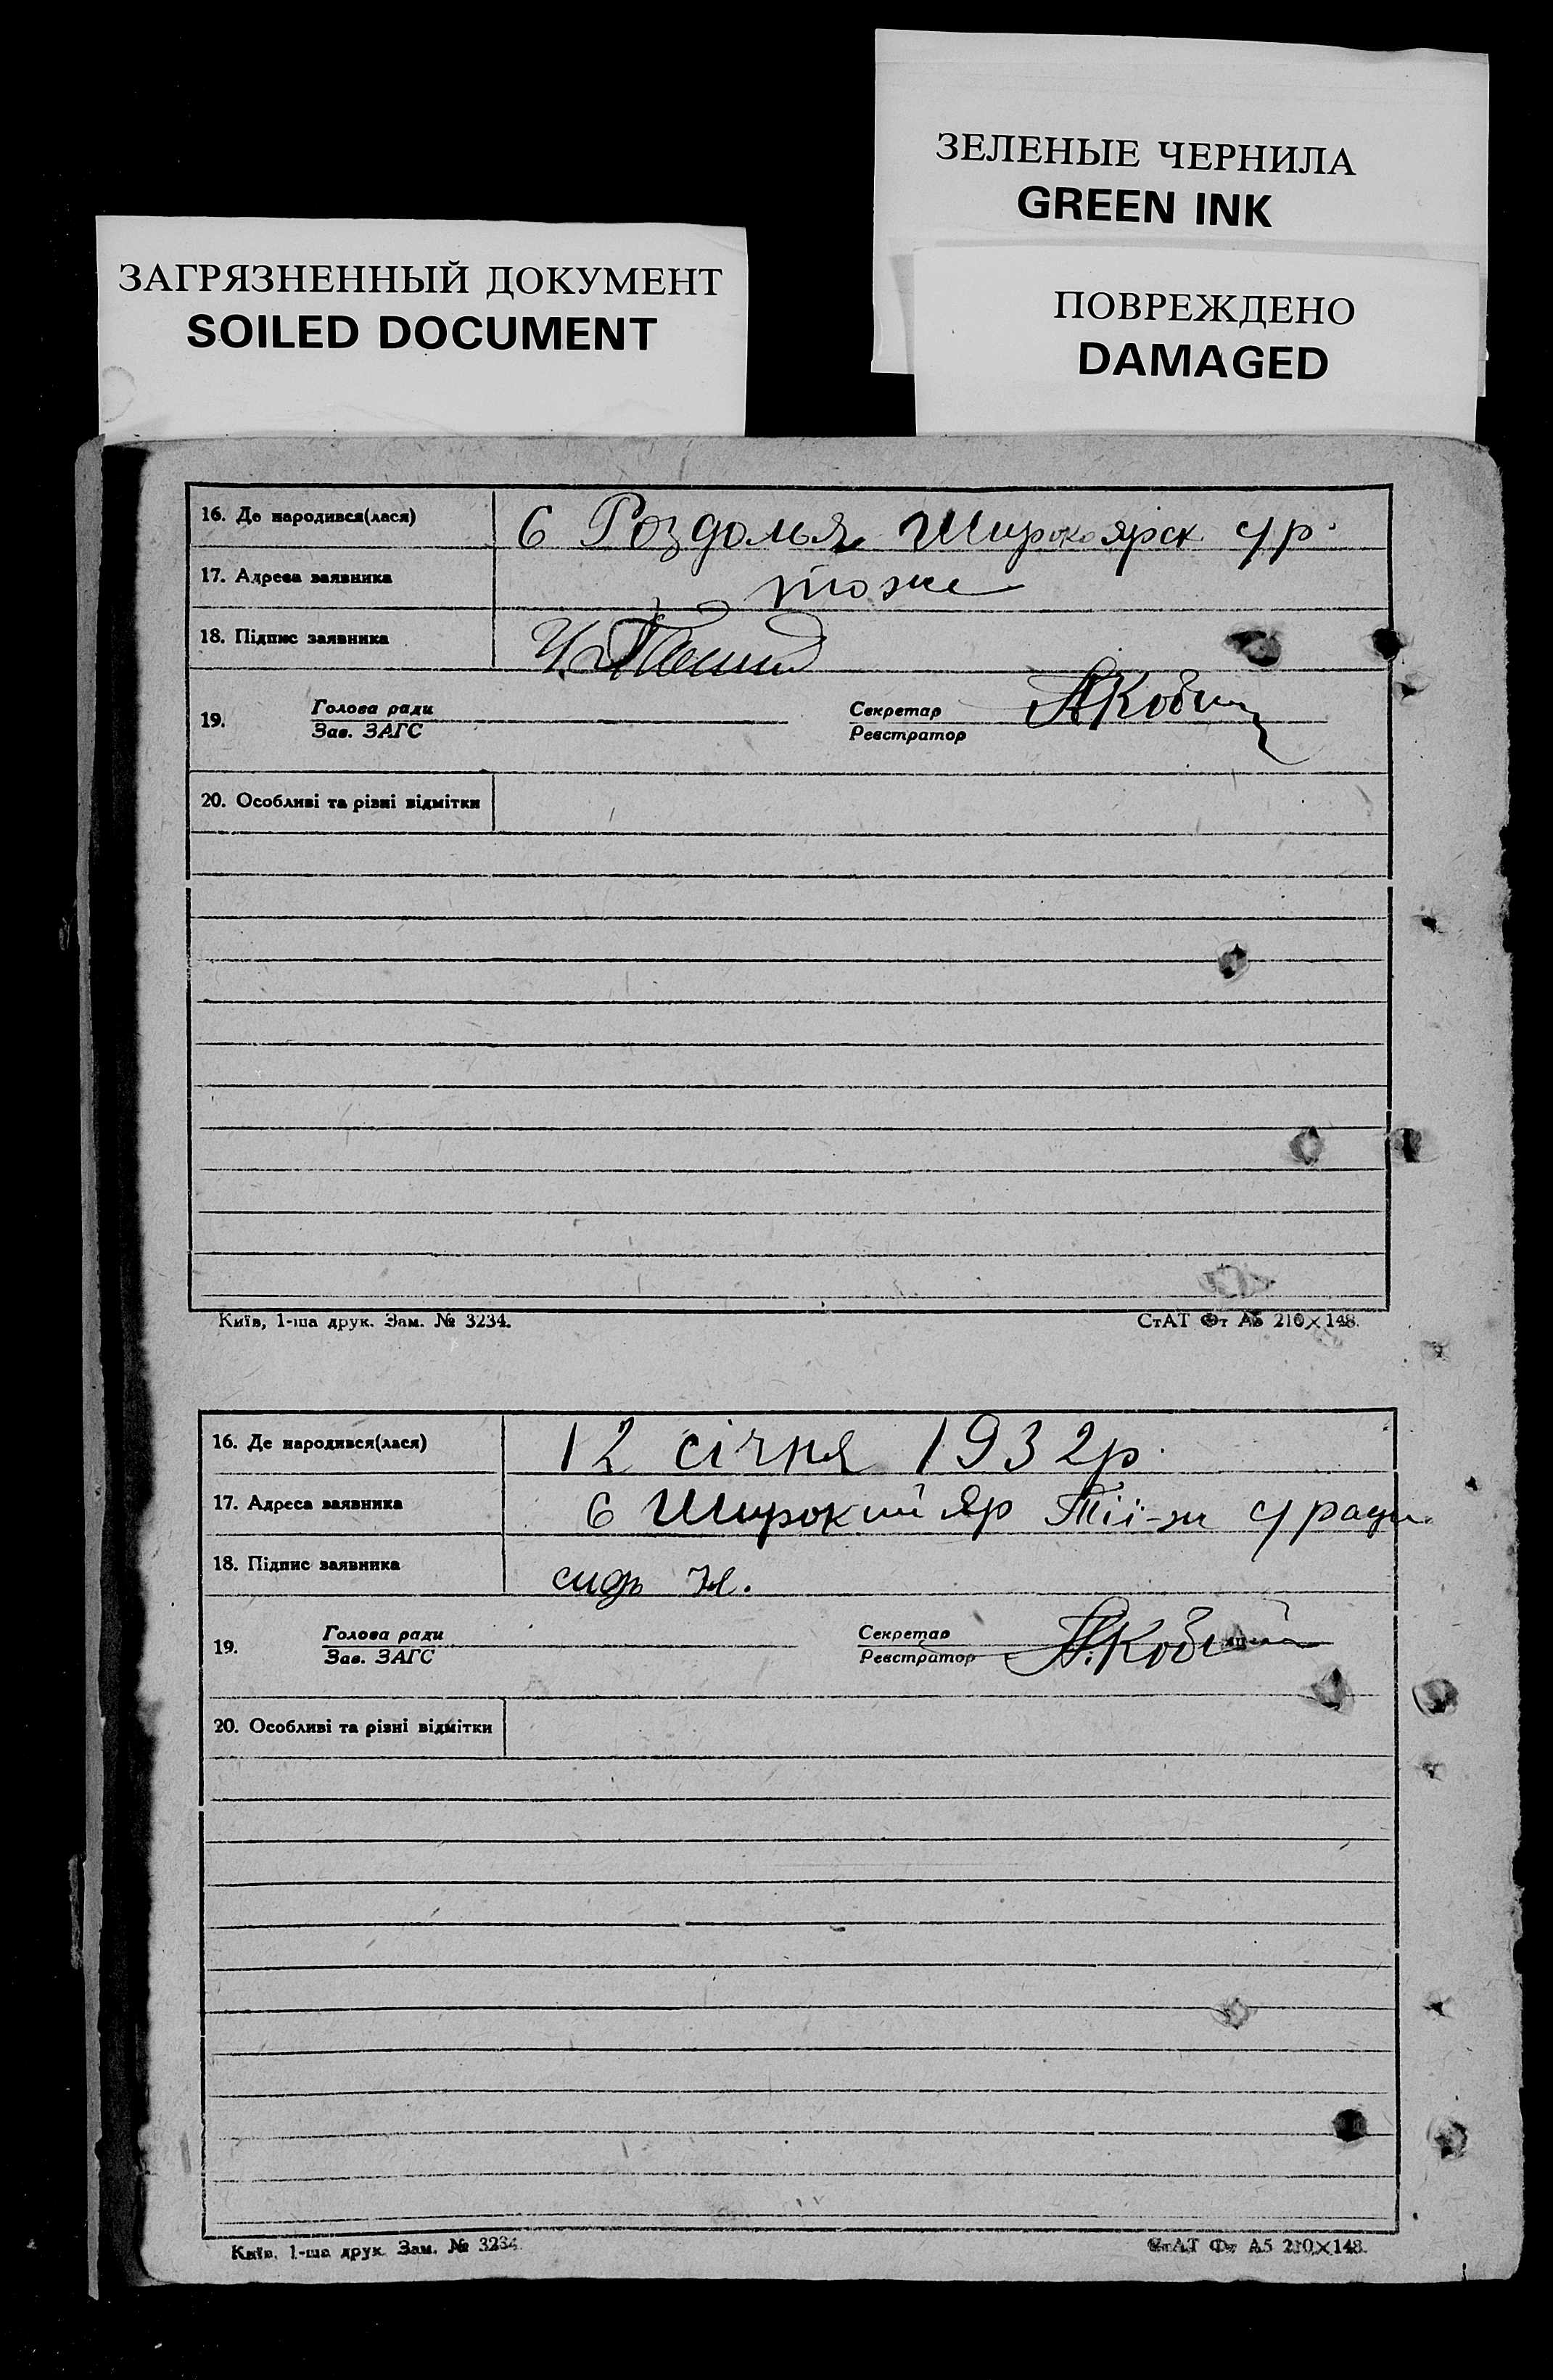 ЗЕЛЕНЫЕ ЧЕРНИЛА
GREEN INK
ЗАГРЯЗНЕННЫЙ ДОКУМЕНТ
SOILED DOCUMENT
ПОВРЕЖДЕНО
DAMAGED
16. Де народився(лася) с Роздолья Широкоярск с/р.
17. Адреса заявника тоже
18. Підпис заявника
19. Голова ради Секретар АКоб
Зав. ЗАГС Реєстратор
20. Особливі та різні відмітки
Київ, 1-ша друк. Зам. № 3234.
СтАТ Фт А5 210×148.
16. Де народився(лася) 12 січня 1932р.
17. Адреса заявника с Широкий Яр с/ради
18. Підпис заявника
19. Голова ради Секретар А.Коб
Зав. ЗАГС Реєстратор
20. Особливі та різні відмітки
Київ, 1-ша друк. Зам. № 3234.
СтАТ Фт А5 210×148.